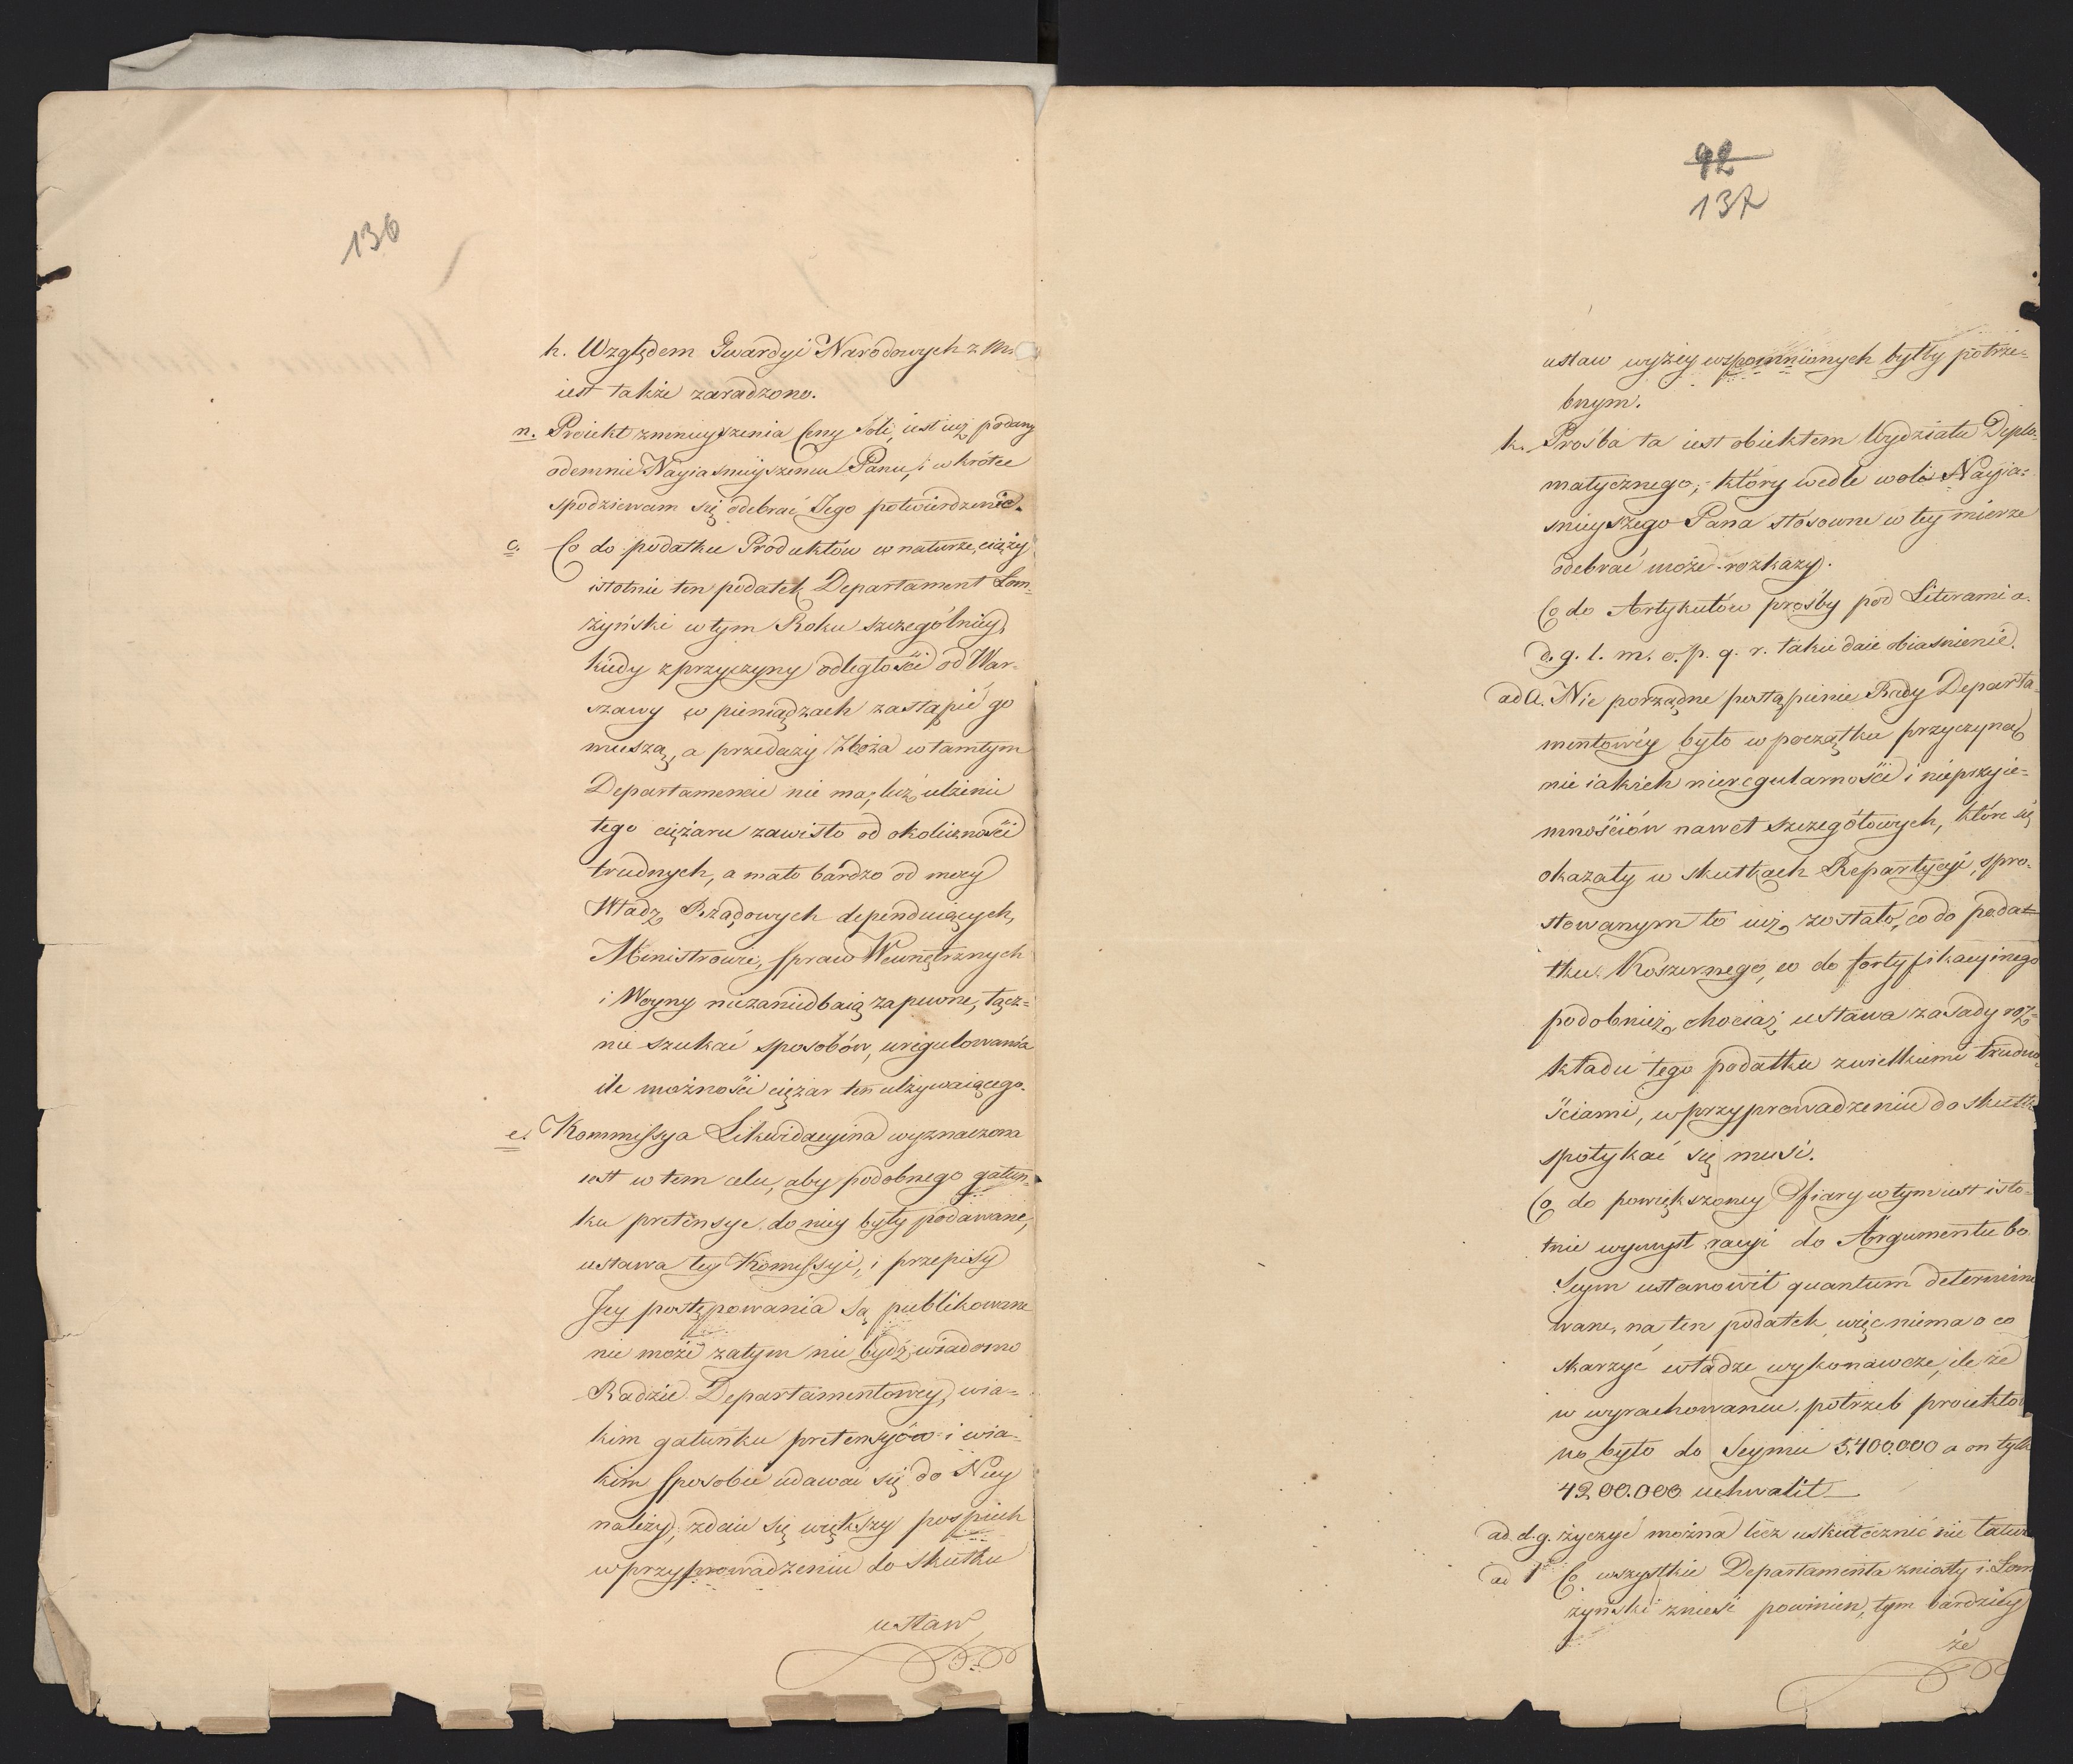 136
h. Względem Gwardyi Narodowych z
iest także zaradzono.
n. Proiekt zmnieyszenia Ceny Soli, iest iuż podany
odemnie Nayiasnieyszemu Panu, i wkrótce
spodziewam się odebrać Jego potwierdzenie.
o. Co do podatku Produktów w naturze, ciąży
istotnie ten podatek Departament Łom¬
żyński w tym Roku szczególniey,
kiedy z przyczyny odległości od War¬
szawy w pieniądzach zastąpić go
muszą, a przedaży Zboża w tamtym
Departamencie nie ma; lecz ulżenie
tego ciężaru zawisło od okoliczności
trudnych, a mało bardzo od mocy
Władz Rządowych dependuiących,
Ministrowie, Spraw Wewnętrznych
i Woyny niezaniedbaią zapewne, łącz=
nie szukać sposobów, uregulowania
ile możności ciężar ten ulżywaiącego.
e. Kommissya Likwidacyina wyznaczona
iest w tem celu, aby podobnego gatun¬
ku pretensye do niey były podawane,
ustawa tey Komissyi, i przepisy
Jey postępowania są publikowane
nie może zatym nie bydź wiadomo
Radzie Departamentowey, w ia=
kim gatunku pretensyów i w ia=
kim sposobie udawać się do Niey
należy; zdaie się większy pospiech
w przyprowadzeniu do skutku
ustaw
92
137
ustaw wyżey wspomnionych byłby potrze=
bnym.
k. Prośba ta iest obiektem Wydziału Diplo=
matycznego, który wedle woli Nayja=
snieyszego Pana stosowne w tey mierze
odebrać może rozkazy.
Co do Artykułów prośby pod Literami a.
d. g. l. m. o. p. q. r. takie daie obiasnienie.
ad a. Nie porządne postąpienie Rady Departa=
mentowéy było w początku przyczyną
nie iakich nieregularności i nieprzyie=
mnościów nawet szczegółowych, które się
okazały w skutkach Repartycyi, spro=
stowanym to iuż zostało, co do podat
tku Koszernego, co do fortyfikacyinego
podobnież, chociaż ustawa zasady roz=
kładu tego podatku z wielkiemi trudno
ściami, w przyprowadzeniu do skutk
spotykać się musi.
Co do powiększoney Ofiary w tym iest isto=
tnie wymysł racyi do Argumentu bo
Seym ustanowił quantum determino
wane, na ten podatek, więc niema o co
skarżyć władze wykonawcze, ile że
w wyrachowaniu potrzeb proiekto
no było do Seymu 5,400.000 a on tylk
4200.000 uchwalił
ad. d. g. życzyć można lecz uskutecznić nie łatwo
ad l Co wszystkie Departamenta zniosły i Łom
żyński znieść powinien, tym bardziey
że